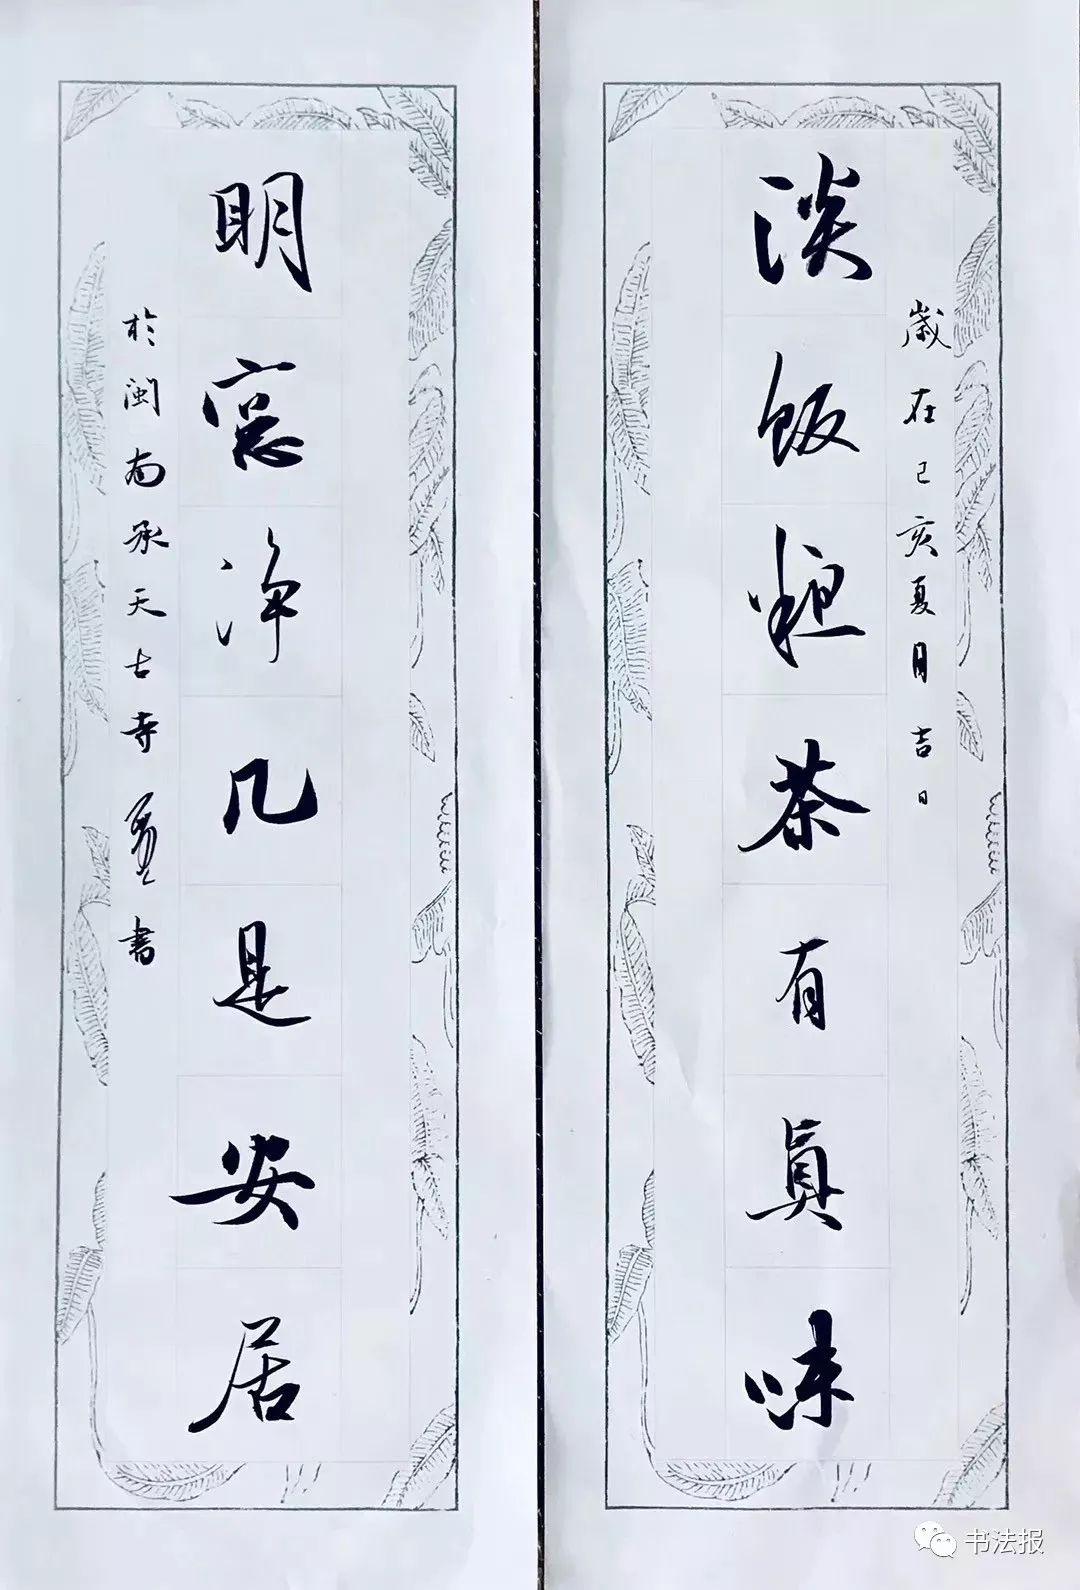 歲在己亥夏月吉日
淡飯粗茶有真味
明窓净几是安居
於閩南承天古寺
書
书法报